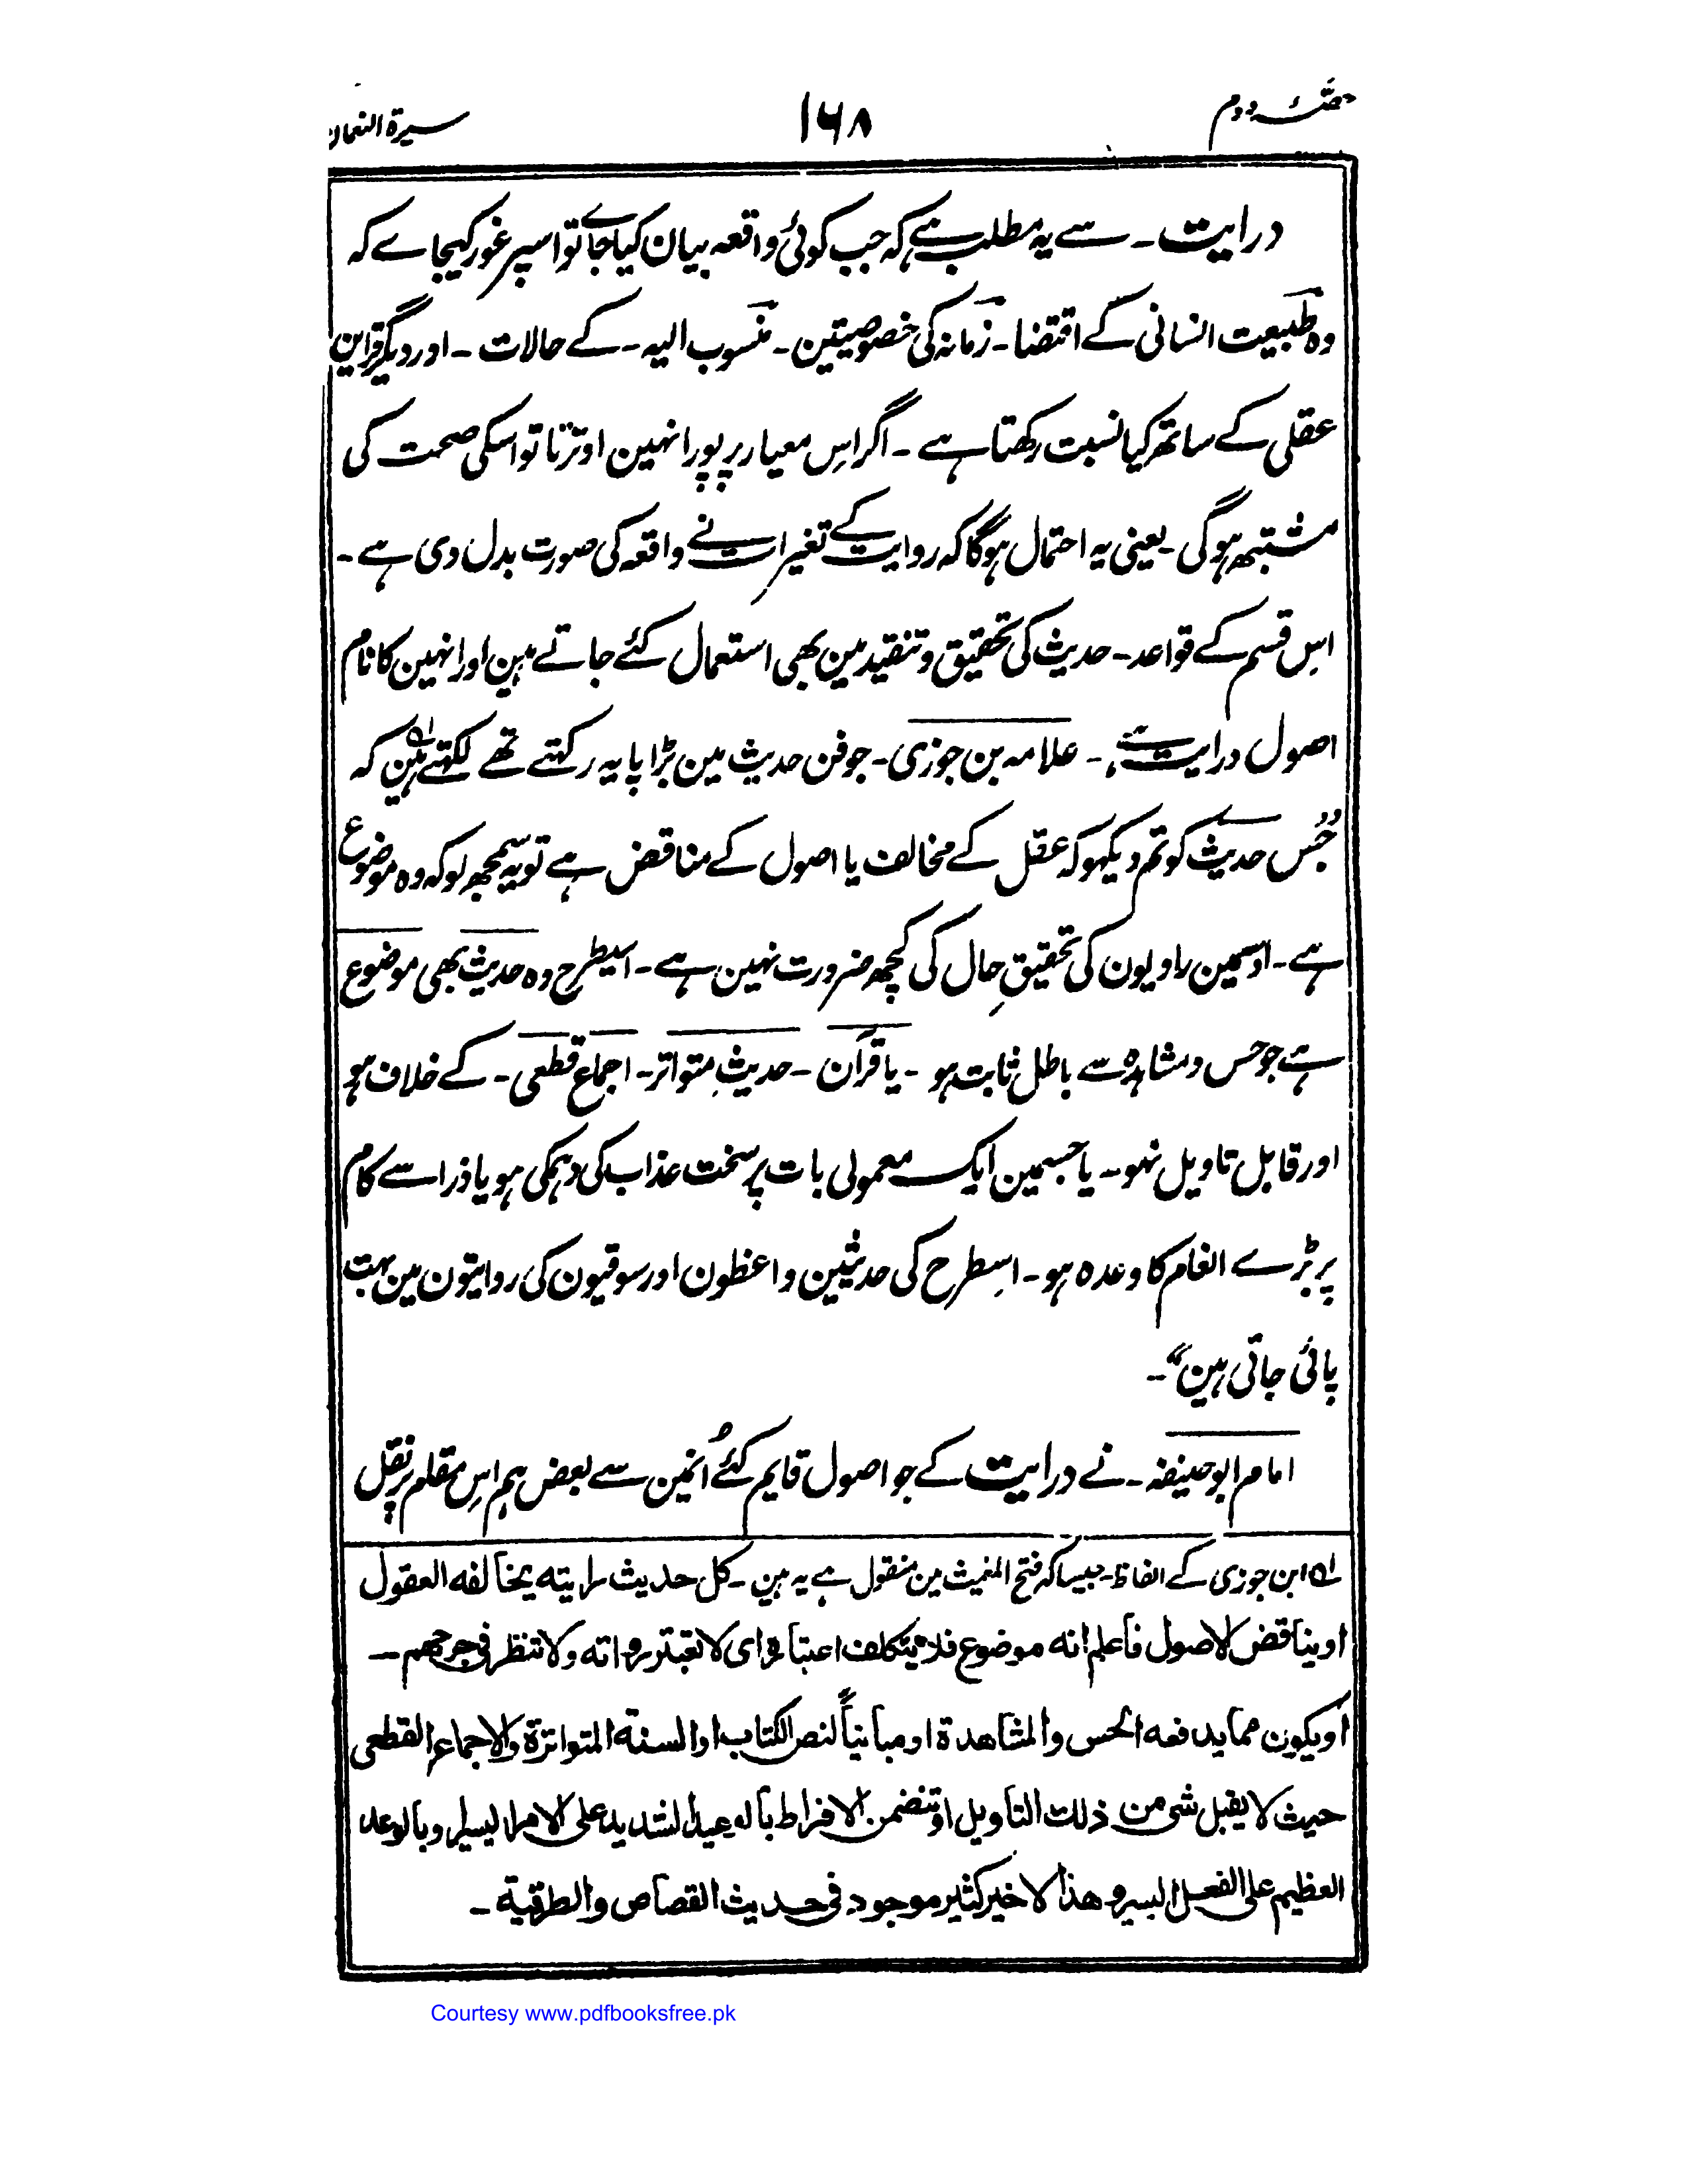 حصّہ دوم ۱۶۸ سیرۃ النعمان
درایت ۔ سے یہ مطلب ہے کہ جب کوئی واقعہ بیان کیا جاے تو اسپر غور کیجاے کہ
وہ طبیعت انسانی کے اقتضا ۔ زمانہ کی خصوصیتین ۔ منسوب الیہ ۔ کے حالات ۔ اور دیگر قراین
عقلی کے ساتھ کیا نسبت رکھتا ہے ۔ اگر اِس معیار پر پورا نہین اوترتا تو اسکی صحت کی
مشتبہ ہوگی ۔ یعنی یہ احتمال ہوگا کہ روایت کے تغیرات نے واقعہ کی صورت بدل دی ہے ۔
اِس قسم کے قواعد ۔ حدیث کی تحقیق و تنقید مین بھی استعمال کئے جاتے ہین اور انہین کا نام
اصول درایت ہے ۔ علامہ بن جوزی ۔ جو فن حدیث مین بڑا پایہ رکہتے تھے لکہتے ہین لہ کہ
"جُس حدیث کو تم دیکہو کہ عقل کے مخالف یا اصول کے مناقض ہے تو یہ سمجھ لو کہ وہ موضوع
ہے ۔ اوسمین راویون کی تحقیقِ حال کی کچھ ضرورت نہین ہے ۔ اسیطرح وہ حدیث بھی موضوع
ہے جو حس و مشاہدہ سے باطل ثابت ہو ۔ یا قرآن ۔ حدیثِ متواتر ۔ اجماع قطعی ۔ کے خلاف ہو
اور قابل تاویل نہو ۔ یا جسمین ایک معمولی بات پر سخت عذاب کی دہمکی ہو یا ذرا سے کام
پر بڑے انعام کا وعدہ ہو ۔ اسِطرح کی حدیثین واعظون اور سوقیون کی روایتون مین بہت
پائی جاتی ہین" ۔
امام ابو حنیفہ ۔ نے درایت کے جو اصول قایم کئے اُنمین سے بعض ہم اِس مقام پر نقل
لہ ابن جوزی کے الفاظ ۔ جیسا کہ فتح المغیث مین منقول ہے یہ ہین ۔ کل حدیث رایته یخالفه العقول
او یناقض الاصول فاعلم انه موضوع فلا یتکلف اعتبارہ ای لا تعتبر رواته ولا تنظر فی جرحهم ۔
او یکون مما یدفعه الحس والمشاهدة او مبانیاً لنص الکتاب او السنة المتواترة والاجماع القطعی
حیث لا یقبل شی من ذلک التاویل او تتضمن الافراط بالوعید الشدید علی الامر الیسیر وبالوعد
العظیم علی الفعل الیسر وهذا الاخیر کثیر موجود فی حدیث القصاص والطرقیة ۔
Courtesy www.pdfbooksfree.pk